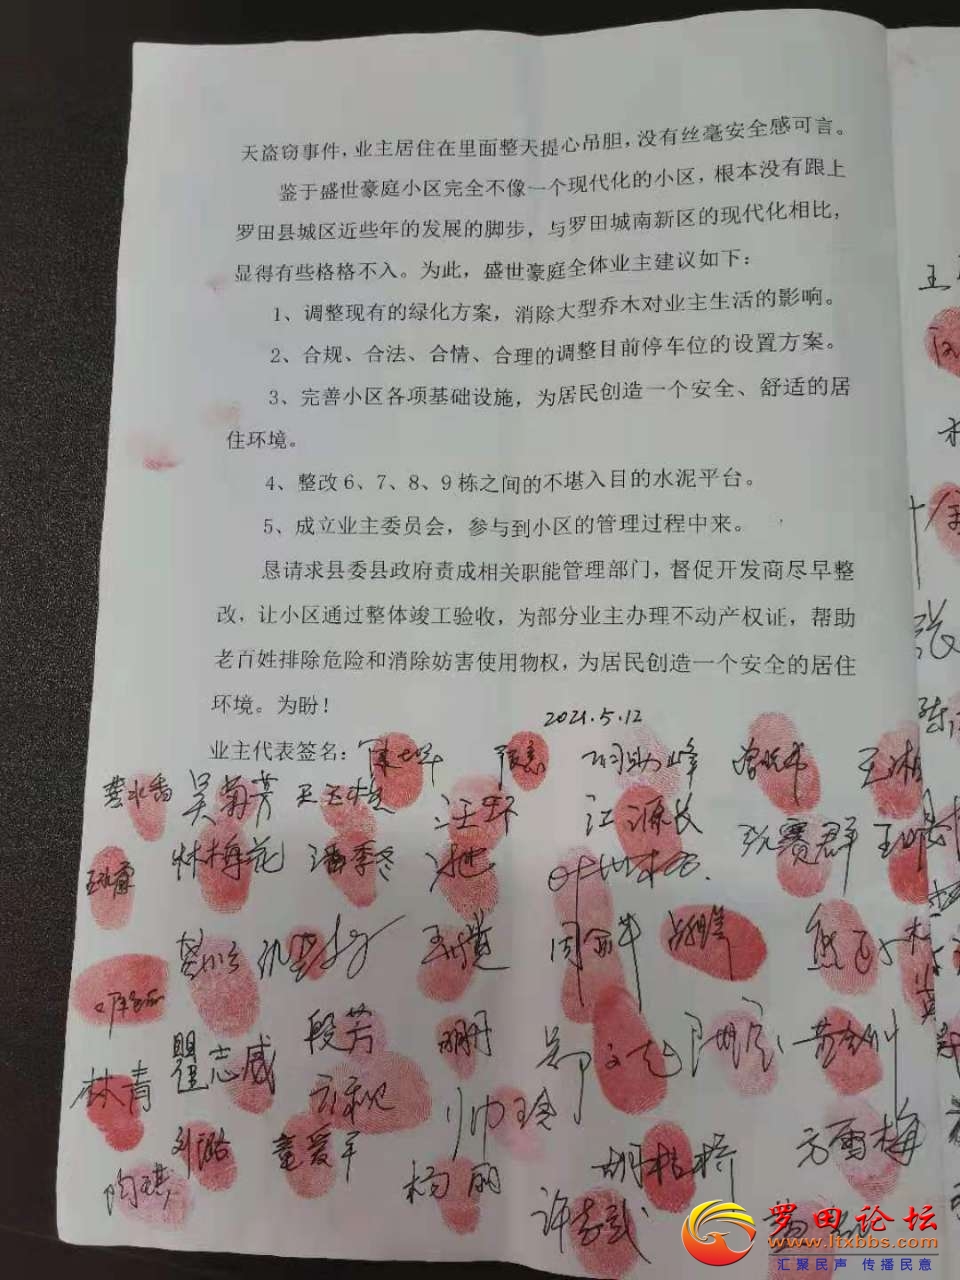 天盗窃事件，业主居住在里面整天提心吊胆，没有丝毫安全感可言。
鉴于盛世豪庭小区完全不像一个现代化的小区，根本没有跟上
罗田县城区近些年的发展的脚步，与罗田城南新区的现代化相比，
显得有些格格不入。为此，盛世豪庭全体业主建议如下：
1、调整现有的绿化方案，消除大型乔木对业主生活的影响。
2、合规、合法、合情、合理的调整目前停车位的设置方案。
3、完善小区各项基础设施，为居民创造一个安全、舒适的居
住环境。
4、整改6、7、8、9栋之间的不堪入目的水泥平台。
5、成立业主委员会，参与到小区的管理过程中来。
恳请求县委县政府责成相关职能管理部门，督促开发商尽早整
改，让小区通过整体竣工验收，为部分业主办理不动产权证，帮助
老百姓排除危险和消除妨害使用物权，为居民创造一个安全的居住
环境。为盼！
2021.5.12
业主代表签名：
吴菊芳 汪环 江源长
林梅花 潘季冬 阮赛群
周金华
段芳
瞿志威 郑文 黄金刚
林青 帅玲
刘璐 童爱军 方雷梅
陶琪 杨丽 胡桂桥
许志武
罗田论坛
www.ltxbbs.com
汇聚民声 传播民意